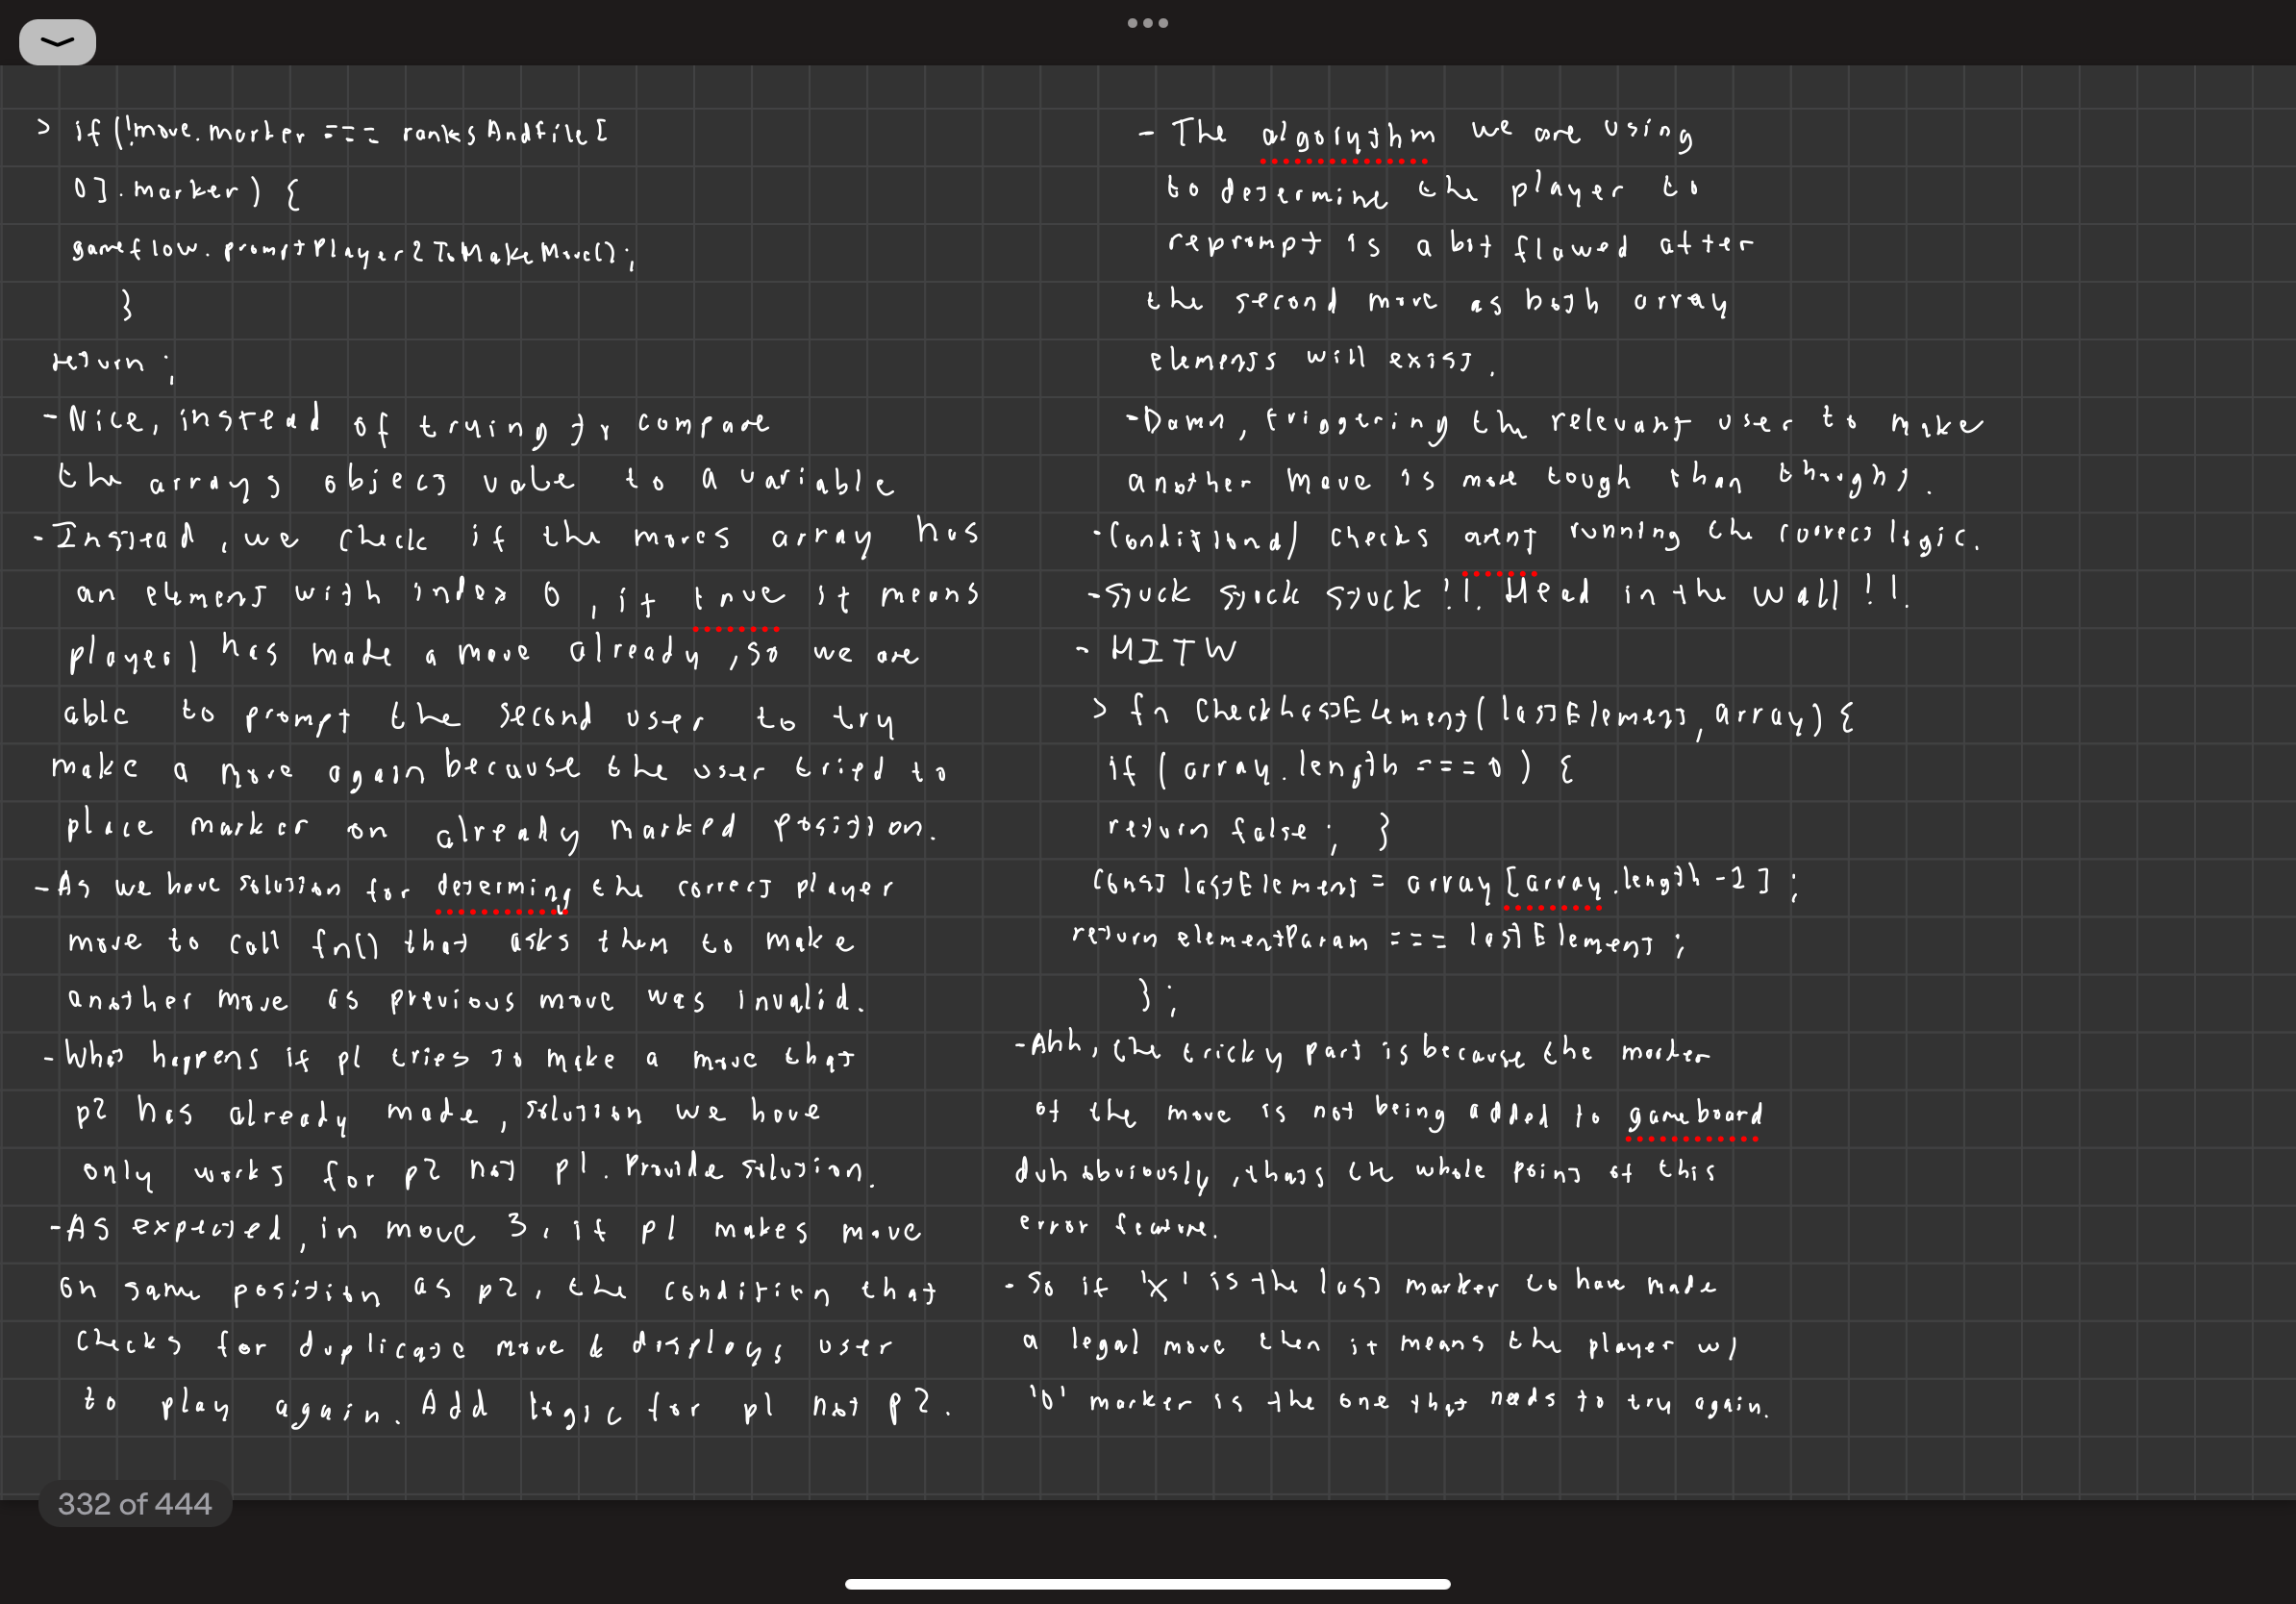 > if (!move.marker === ranksAndFile[
0].marker) {
gameflow.promptPlayer2ToMakeMove();
}
return;
- Nice, instead of trying to compare
the arrays object value to a variable
- Instead, we check if the moves array has
an element with index 0, if true it means
player 1 has made a move already, so we are
able to prompt the second user to try
make a move again because the user tried to
place marker on already marked position.
- As we have solution for determing the correct player
move to call fn() that asks them to make
another move as previous move was invalid.
- What happens if p1 tries to make a move that
p2 has already made, solution we have
only works for p2 not p1. Provide solution.
- As expected, in move 3, if p1 makes move
on same position as p2, the condition that
checks for duplicate move & displays user
to play again. Add logic for p1 not p2.
- The algorythm we are using
to determine the player to
reprompt is a bit flawed after
the second move as both array
elements will exist.
- Damn, triggering the relevant user to make
another move is more tough than thought.
- Conditional checks arent running the correct logic.
- Stuck stuck stuck !!. Head in the wall !!.
- HITW
> fn CheckLastElement(lastElement, array) {
if (array.length === 0) {
return false; }
const lastElement = array[array.length -1];
return elementParam === lastElement;
};
- Ahh, the tricky part is because the marker
of the move is not being added to gameboard
duh obviously, thats the whole point of this
error feature.
- So if 'X' is the last marker to have made
a legal move then it means the player w/
'O' marker is the one that needs to try again.
332 of 444